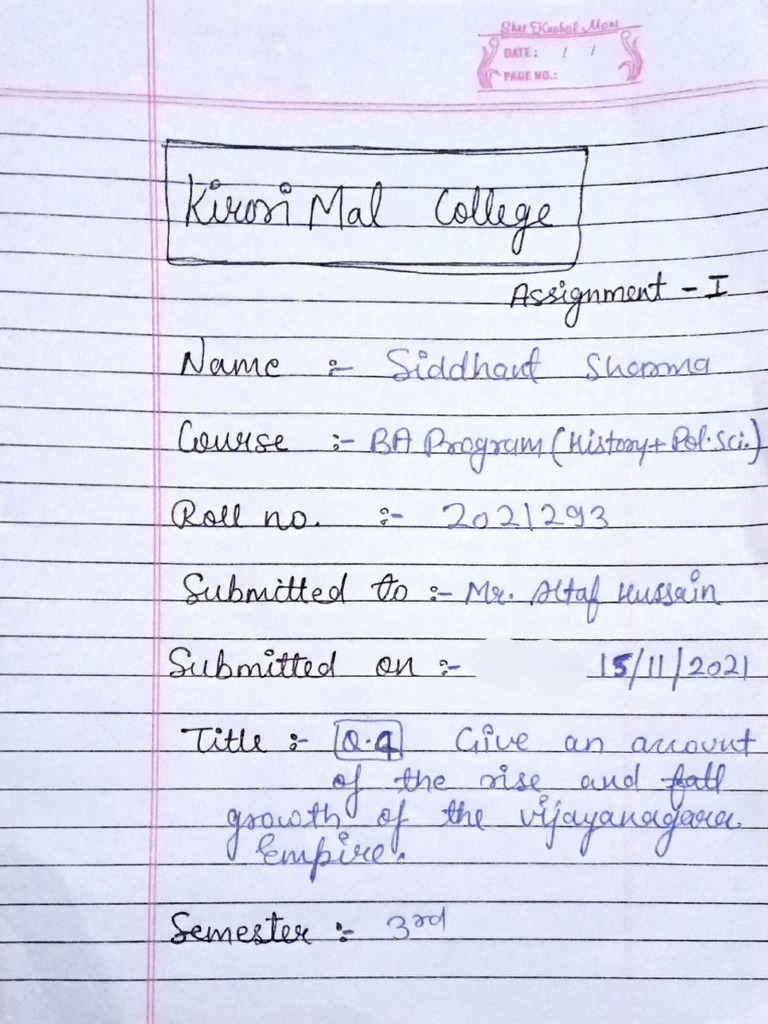 Shree Kushal Mani
DATE: / /
PAGE NO.:
Kirori Mal College
Assignment - I
Name :- Siddhant Sharma
Course :- BA Program (History + Pol. Sci.)
Roll no. :- 2021293
Submitted to :- Mr. Altaf Hussain
Submitted on :- 15/11/2021
Title :- Q.4 Give an account
of the rise and fall
growth of the vijayanagara
Empire.
Semester :- 3rd